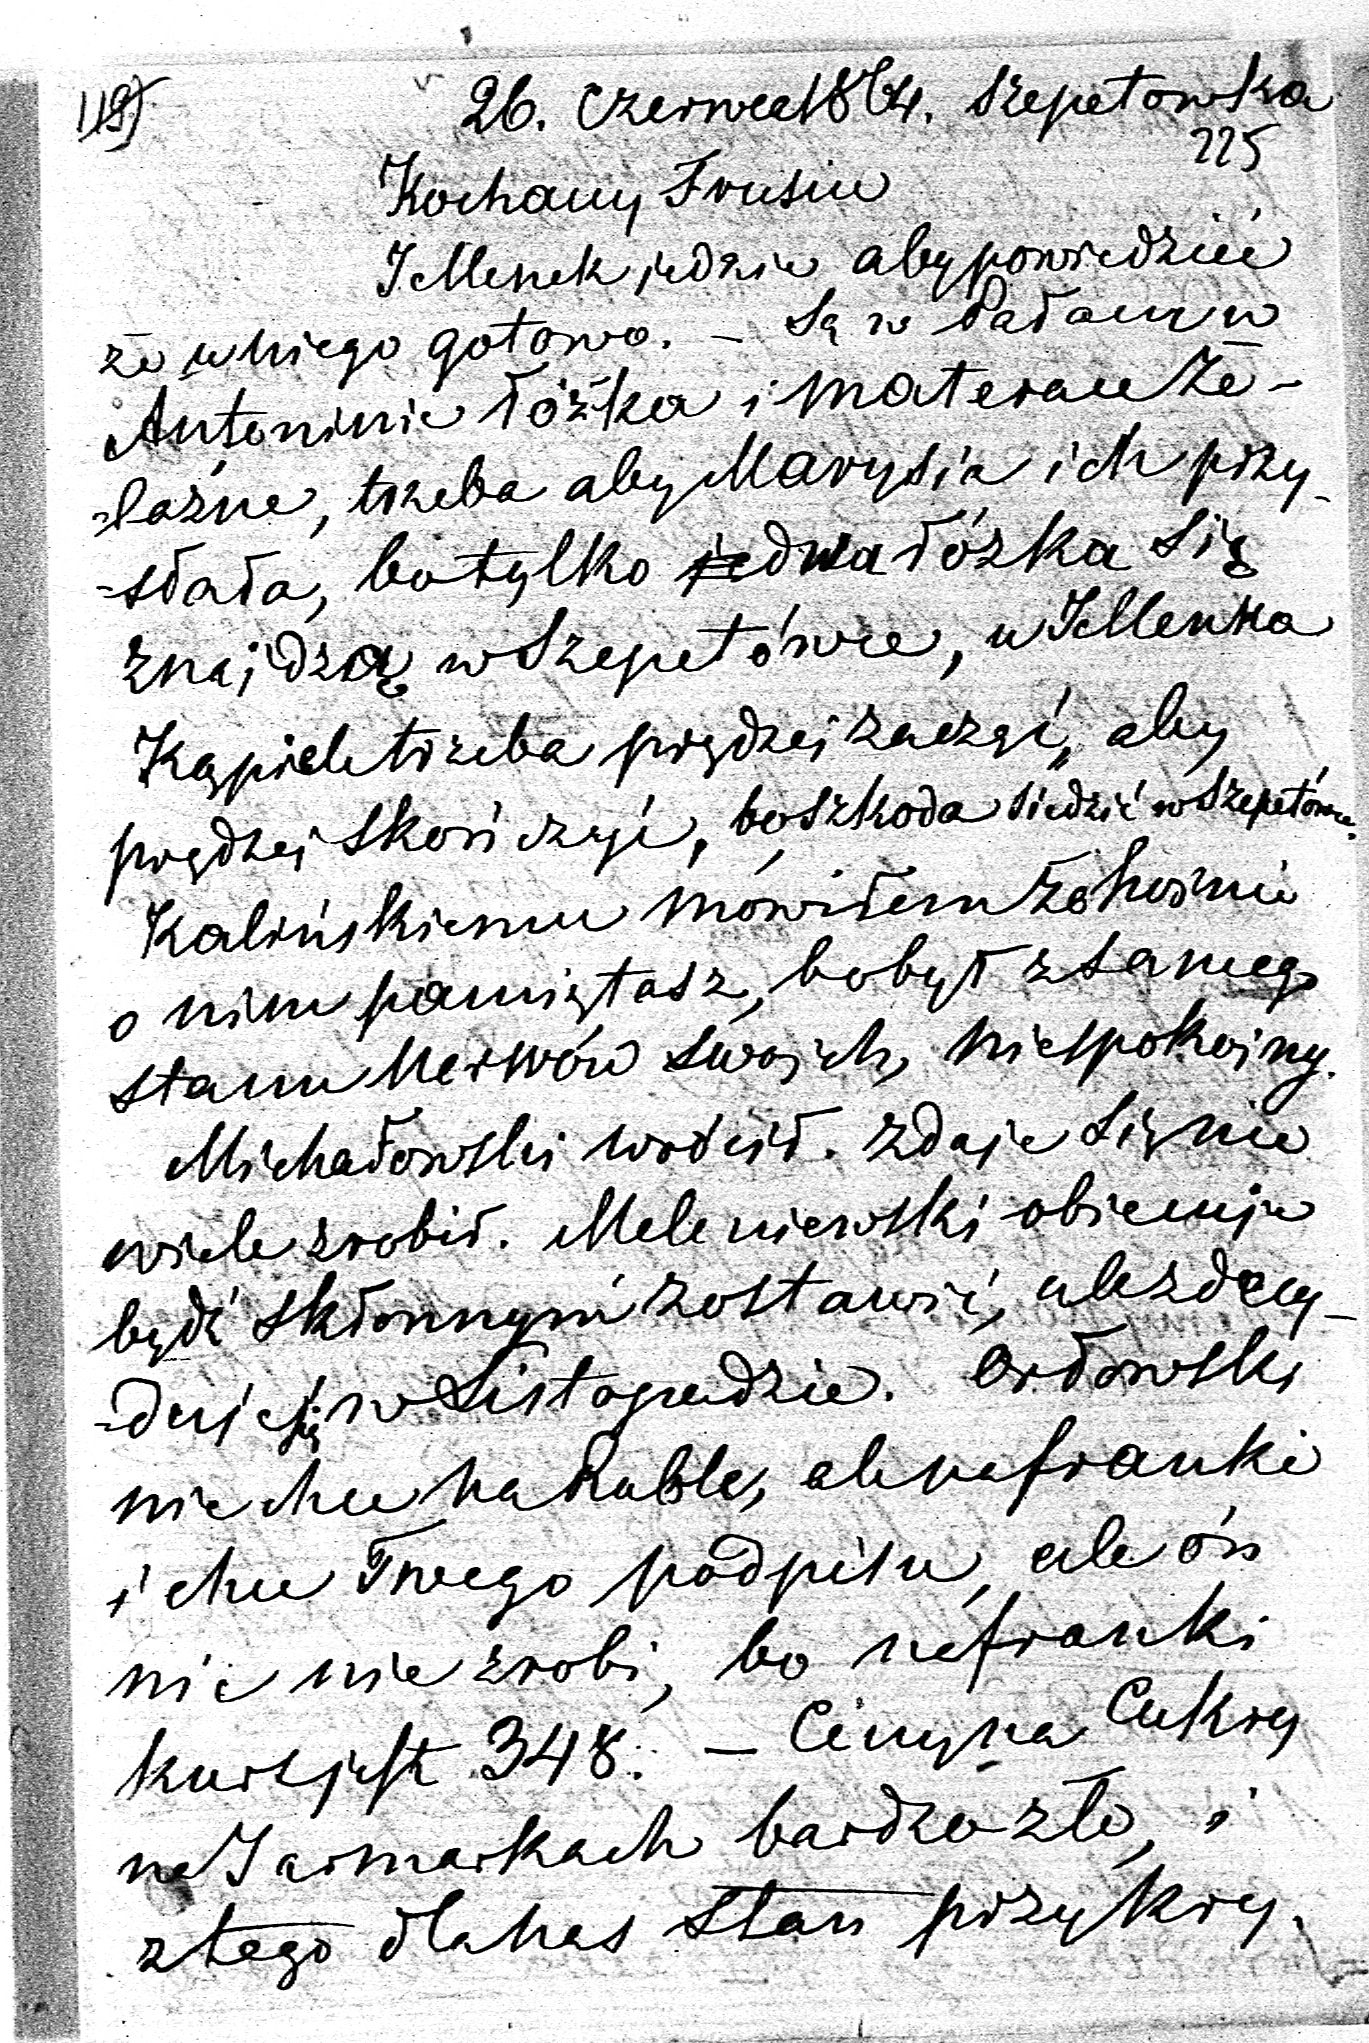 119)
26. Czerwca 1864. Szepetowka
225
Kochany Frusiu
Jellenek jedzie aby powiedzieć
że u niego gotowo. – Są w Pałacu w
Antoninie łóżka i materace że-
-lazne, trzeba aby Marysia ich przy-
-słała, bo tylko dwa łóżka się
znajdzą w Szepetówce, u Jellenka
Kąpiele trzeba prędzej zacząć, aby
prędzej skończyć, bo szkoda siedzić w Szepetówce.
Kalińskiemu mówiłem że hojnie
o nim pamiętasz, bo był z samego
stanu Nerwów swoich, niespokojny.
Michałowski wrócił. zdaje się nie
wiele zrobił. Meleniewski obiecuje
bydź skłonnym zostawić, ale zdecy-
-duje się w Listopadzie. Orłowski
nie chce na Ruble, ale na franki
i chce Twego podpisu, ale ón
nic nie zrobi, bo na franki
kurs jest 348. – Ceny na Cukry
na Jarmarkach bardzo złe, i
z tego dla nas stan przykry.